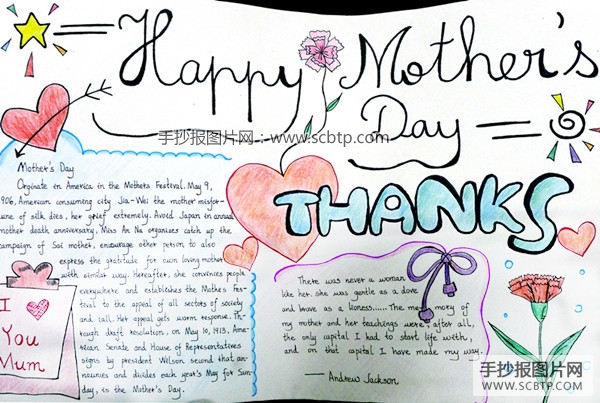 Happy Mother's
Day
手抄报图片网：www.scbtp.com
THANKS
Mother's Day
Orginate in America in the Mothers Festival. May 9,
906, American consuming city Jia-Wei the mother misfor-
tune of silk dies, her grief extremely. Avoid Japan in annual
mother death anniversary, Miss An Na organises catch up the
ampaign of Sai mother, encourage other person to also
express the gratitude for own loving mother
with similar way. Hereafter, she convinces people
everywhere and establishes the Mothers Fes-
tival to the appeal of all sectors of society
and call. Her appeal gets worm response. Th-
rough draft resolution. on May 10, 1913, Ame-
rican Senate and House of Representatives
signs by president Welson second that an-
nounces and divides each year's May for Sun-
day, is the Mother's Day.
I
You
Mum
There was never a woman
like her. she was gentle as a dove
and brave as a lioness...... The memory of
my mother and her teachings were, after all,
the only capital I had to start life with,
and on that capital I have made my way.
—— Andrew Jackson
手抄报图片网
WWW.SCBTP.COM